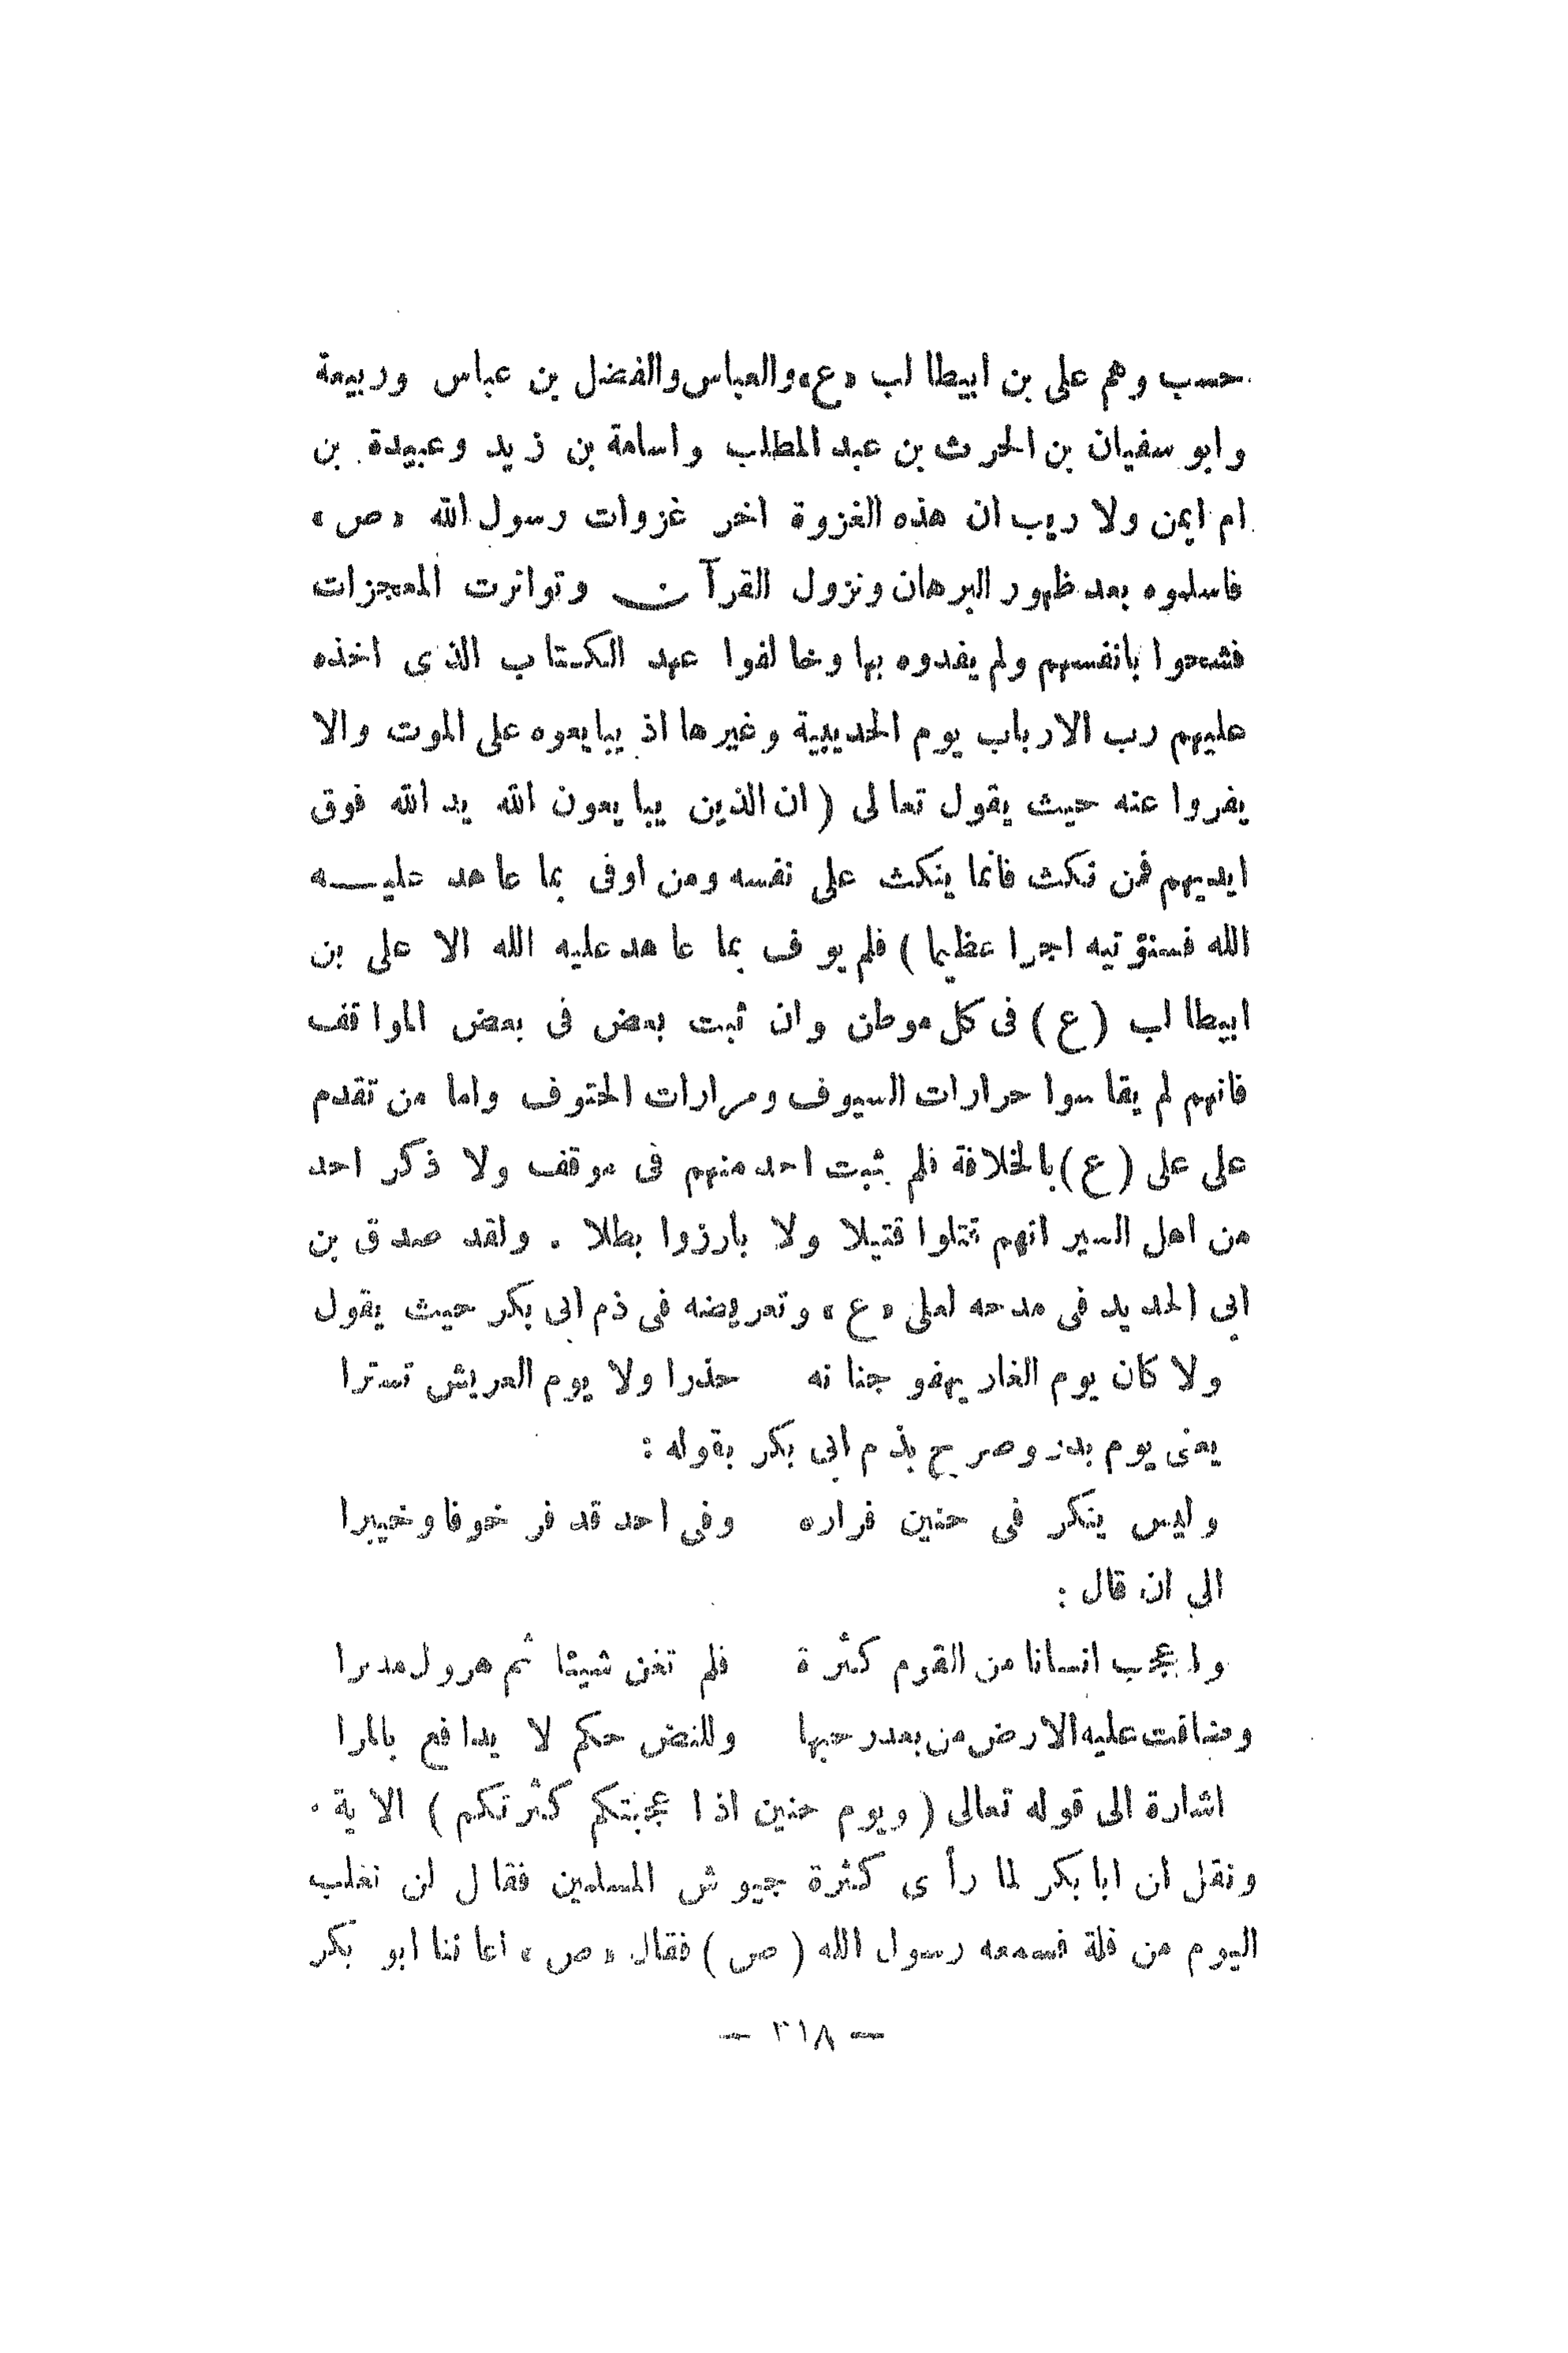 حسب وهم على بن ابيطالب «ع» والعباس والفضل بن عباس وربيعة
وابو سفيان بن الحرث بن عبد المطلب واسامة بن زيد وعبيدة بن
ام ايمن ولا ريب ان هذه الغزوة اخر غزوات رسول الله «ص»
فاسلموه بعد ظهور البرهان ونزول القرآن وتواترت المعجزات
فشحوا بانفسهم ولم يفدوه بها وخالفوا عهد الكتاب الذى اخذه
عليهم رب الارباب يوم الحديبية وغيرها اذ يبايعوه على الموت والا
يفروا عنه حيث يقول تعالى ( ان الذين يبايعون الله يد الله فوق
ايديهم فمن نكث فانما ينكث على نفسه ومن اوفى بما عاهد عليه
الله فسنؤتيه اجرا عظيما ) فلم يوف بما عاهد عليه الله الا على بن
ابيطالب ( ع ) فى كل موطن وان ثبت بعض فى بعض المواقف
فانهم لم يقاسوا حرارات السيوف ومرارات الحتوف واما من تقدم
على على ( ع ) بالخلافة فلم يثبت احد منهم فى موقف ولا ذكر احد
من اهل السير انهم قتلوا قتيلا ولا بارزوا بطلا . ولقد صدق بن
ابى الحديد فى مدحه لعلى «ع» وتعريضه فى ذم ابى بكر حيث يقول
ولا كان يوم الغار يهفو جنانه حذرا ولا يوم العريش تسترا
يعنى يوم بدر وصرح بذم ابى بكر بقوله :
وليس ينكر فى حنين فراره وفى احد قد فر خوفا وخيبرا
الى ان قال :
واعجب انسانا من القوم كثرة فلم تغن شيئا ثم هرول مدبرا
وضاقت عليه الارض من بعد رحبها وللنص حكم لا يدافع بالمرا
اشارة الى قوله تعالى ( ويوم حنين اذا عجبتكم كثرتكم ) الاية .
ونقل ان ابا بكر لما رأى كثرة جيوش المسلمين فقال لن نغلب
اليوم من قلة فسمعه رسول الله ( ص ) فقال «ص» اعاننا ابو بكر
— ٣١٨ —